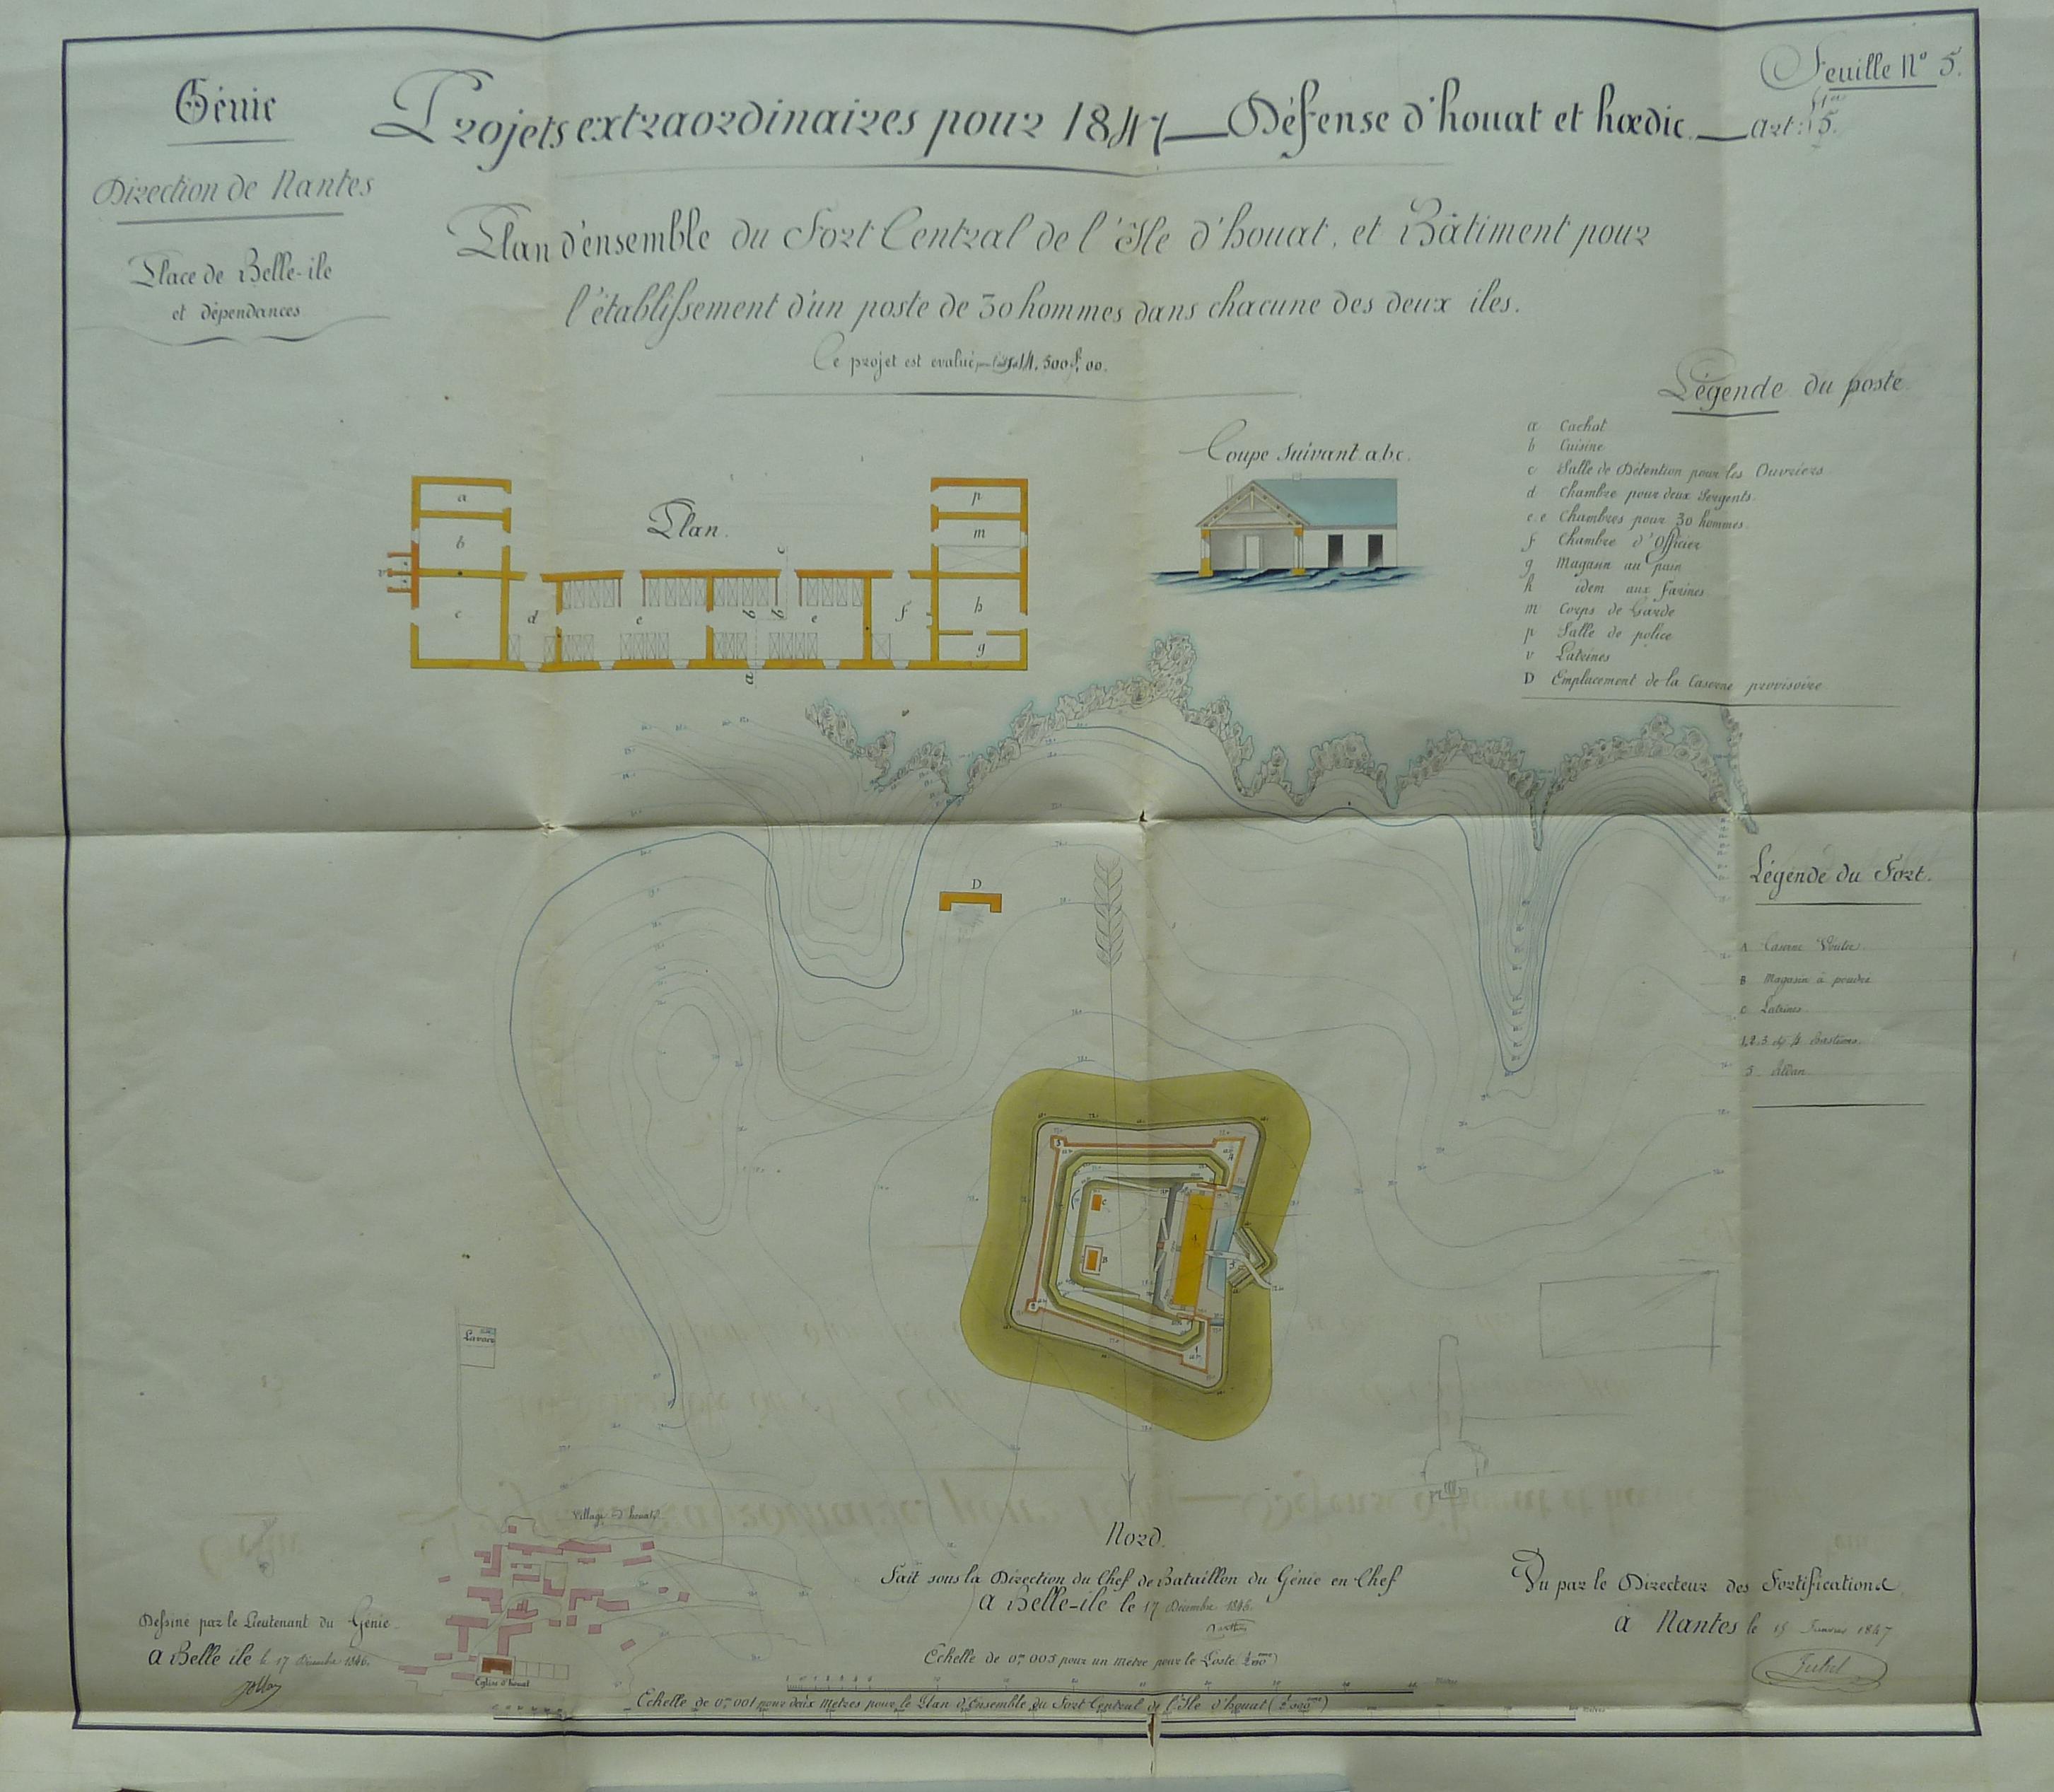 Génie
Direction de Nantes
Place de Belle-ile
et dépendances
Feuille N° 5.
Projets extraordinaires pour 1847 — Défense d'houat et hœdic. — Art: 5.
Plan d'ensemble du Fort Central de l'Isle d'houat, et Bâtiment pour
l'établissement d'un poste de 30 hommes dans chacune des deux iles.
Ce projet est evalué 14.500f,00.
Légende du poste
a Cachot
b Cuisine
c Salle de Détention pour les Ouvriers
d Chambre pour deux Sergents
e.e Chambres pour 30 hommes
f Chambre d'Officier
g Magasin au pain
h idem aux farines
m Corps de Garde
p Salle de police
v Latrines
D Emplacement de la Caserne provisoire
Plan.
a
b
c
d
e
e
f
p
m
h
g
a
b
b
c
Coupe suivant a.b.c.
D
Légende du Fort.
A Caserne Voutée
B Magasin à poudre
C Latrines
1, 2, 3 et 4 Bastions
5
Lavoir
Village d'houat
Eglise d'houat
Nord.
Dessiné par le Lieutenant du Génie
a Belle ile le 17 Décembre 1846.
Fait sous la Direction du Chef de Bataillon du Génie en Chef
a Belle-ile le 17 Décembre 1846.
Vu par le Directeur des Fortifications
à Nantes le 15 Janvier 1847
Echelle de 0,m005 pour un metre pour le Poste
Echelle de 0,m001 pour deux Metres pour le Plan d'Ensemble du Fort Central de l'Isle d'houat